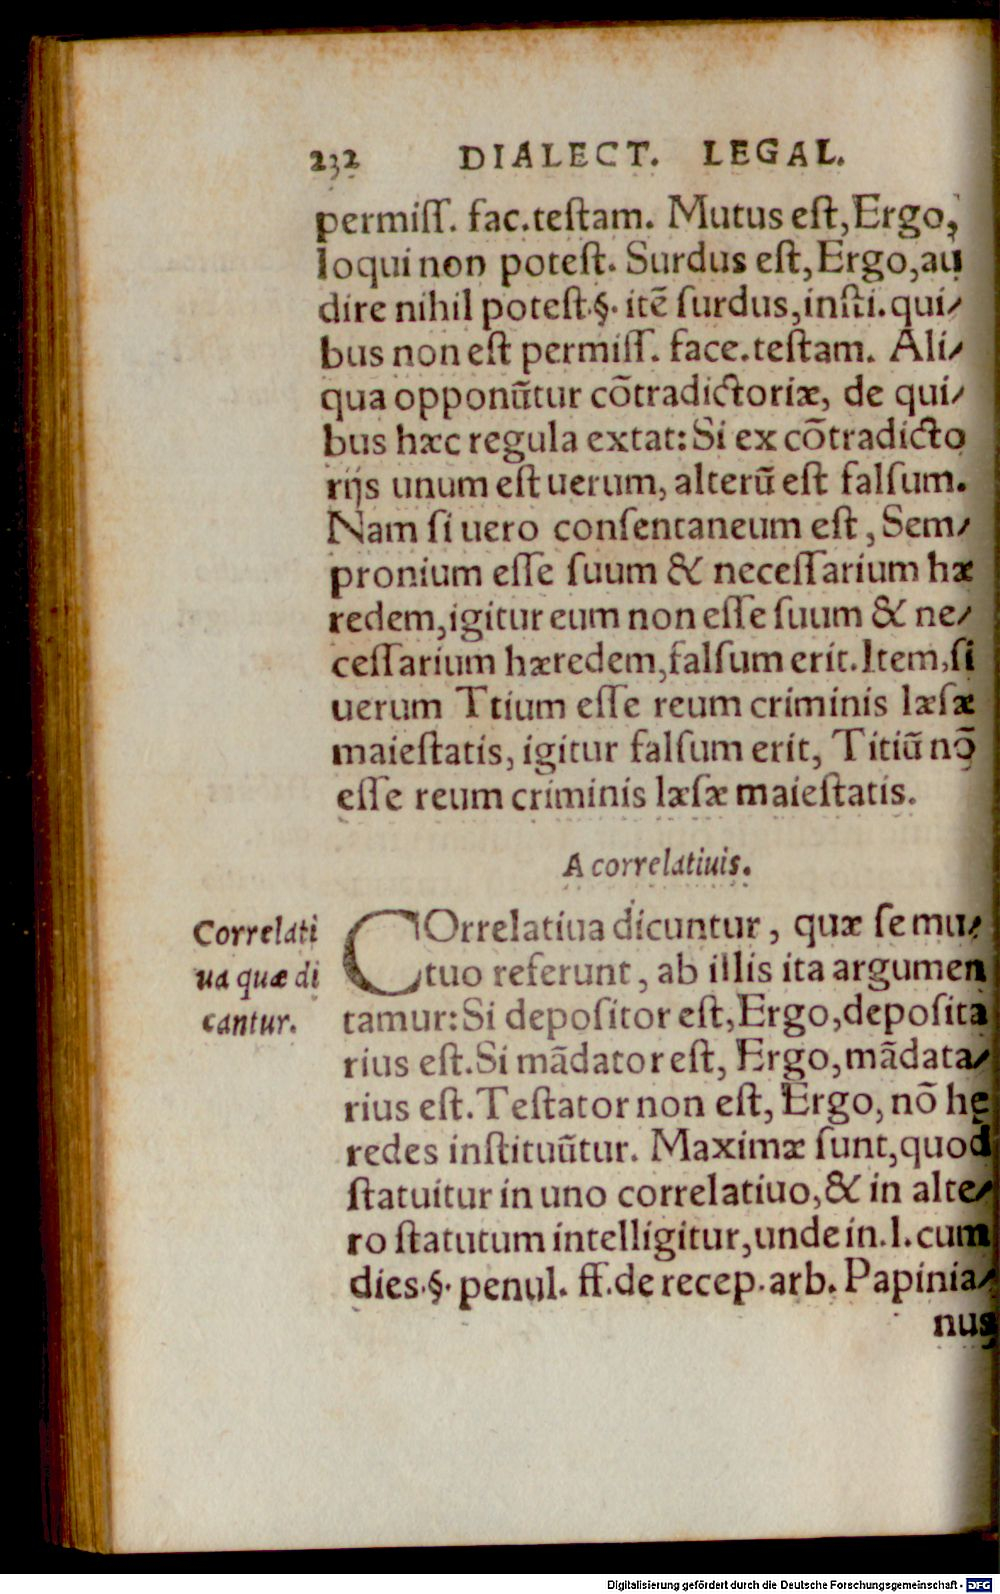 232 DIALECT. LEGAL.
permiſſ. fac.teſtam. Mutus eſt,Ergo,
loqui non poteſt. Surdus eſt,Ergo,au
dire nihil poteſt.§. itē ſurdus,inſti.qui⸗
bus non eſt permiſſ. face.teſtam. Ali⸗
qua opponūtur cōtradictoriæ, de qui⸗
bus hæc regula extat: Si ex cōtradicto
rijs unum eſt uerum, alterū eſt falſum.
Nam ſi uero conſentaneum eſt, Sem⸗
pronium eſſe ſuum & neceſſarium hæ
redem,igitur eum non eſſe ſuum & ne⸗
ceſſarium hæredem,falſum erit.Item,ſi
uerum Ttium eſſe reum criminis læſæ
maieſtatis, igitur falſum erit, Titiū nō
eſſe reum criminis læſæ maieſtatis.
A correlatiuis.
Correlati
ua quæ di
cantur.
COrrelatiua dicuntur, quæ ſe mu⸗
tuo referunt, ab illis ita argumen
tamur: Si depoſitor eſt,Ergo,depoſita
rius eſt.Si mādator eſt, Ergo,mādata⸗
rius eſt.Teſtator non eſt, Ergo, nō hę
redes inſtituūtur. Maximæ ſunt,quod
ſtatuitur in uno correlatiuo,& in alte⸗
ro ſtatutum intelligitur,unde in.l.cum
dies.§. penul. ff.de recep.arb. Papinia⸗
nus
Digitalisierung gefördert durch die Deutsche Forschungsgemeinschaft - DFG